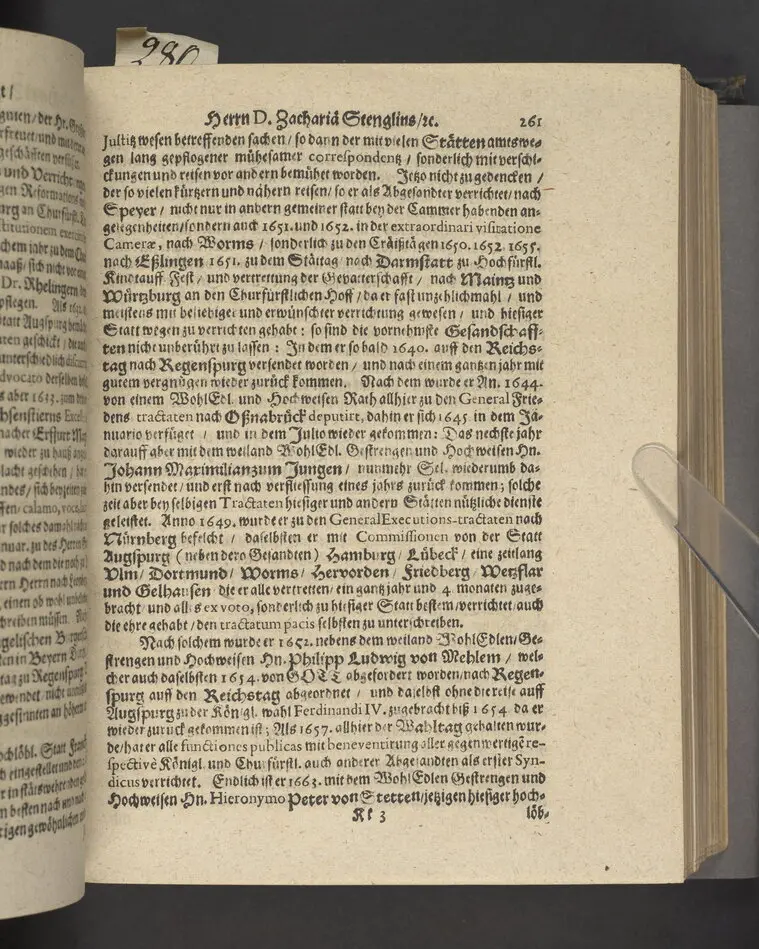 280
Herrn D. Zachariä Stenglins/ ꝛc. 261
Justitzwesen betreffenden sachen / so dann der mit vielen Stätten amtswe-
gen lang gepflogener mühesamer correspondentz / sonderlich mit verschi-
ckungen und reisen vor andern bemühet worden. Jetzo nicht zugedencken /
der so vielen kürtzern und nähern reisen / so er als Abgesandter verrichtet / nach
Speyer / nicht nur in andern gemeiner statt bey der Cammer habenden an-
gelegenheiten / sondern auch 1651. und 1652. in der extraordinari visitatione
Cameræ, nach Worms / sonderlich zu den Cräißtägen 1650. 1652. 1655.
nach Eßlingen 1651. zu dem Stättag nach Darmstatt zu Hochfürstl.
Kindtauff Fest / und vertrettung der Gevatterschafft / nach Maintz und
Würtzburg an den Churfürstlichen Hoff / da er fast unzehlichmahl / und
meistens mit beliebiger und erwünschter verrichtung gewesen / und hiesiger
Statt wegen zu verrichten gehabt : so sind die vornehmste Gesandschaff-
ten nicht unberührt zu lassen : Indem er so bald 1640. auff den Reichs-
tag nach Regenspurg versendet worden / und nach einem gantzen jahr mit
gutem vergnügen wieder zurück kommen. Nach dem wurde er An. 1644.
von einem WohlEdl. und Hochweisen Rath allhier zu den General Frie-
dens tractaten nach Oßnabrück deputirt, dahin er sich 1645 in dem Ja-
nuario verfüget / und in dem Julio wieder gekommen : Das nechste jahr
darauff aber mit dem weiland WohlEdl. Gestrengen und Hochweisen Hn.
Johann Maximilian zum Jungen / nunmehr Sel. wiederumb da-
hin versendet / und erst nach verfliessung eines jahrs zurück kommen; solche
zeit aber bey selbigen Tractaten hiesiger und andern Stätten nützliche dienste
geleistet. Anno 1649. wurde er zu den General Executions-tractaten nach
Nürnberg befelcht / daselbsten er mit Commissionen von der Statt
Augspurg (neben dero Gesandten) Hamburg / Lübeck / eine zeitlang
Ulm / Dortmund / Worms / Hervorden / Friedberg / Wetzflar
und Gelhausen die er alle vertretten / ein gantz jahr und 4 monaten zuge-
bracht und alles ex voto, sonderlich zu hiesiger Statt bestem / verrichtet / auch
die ehre gehabt / den tractatum pacis selbsten zu unterschreiben.
Nach solchem wurde er 1652. nebens dem weiland WohlEdlen / Ge-
strengen und Hochweisen Hn. Philipp Ludwig von Mehlem / wel-
cher auch daselbsten 1654. von GOTT abgefordert worden / nach Regen-
spurg auff den Reichstag abgeordnet / und daselbst ohne die reise auff
Augspurg zu der Königl. wahl Ferdinandi IV. zugebracht biß 1654 da er
wieder zurück gekommen ist; Als 1657. allhier der Wahltag gehalten wur-
de / hat er alle functiones publicas mit beneventirung aller gegenwertigē re-
spectivè Königl. und Churfürstl. auch anderer Abgesandten als erster Syn-
dicus verrichtet. Endlich ist er 1663. mit dem WohlEdlen Gestrengen und
Hochweisen Hn. Hieronymo Peter von Stetten / jetzigen hiesiger hoch-
Kk 3 löb-